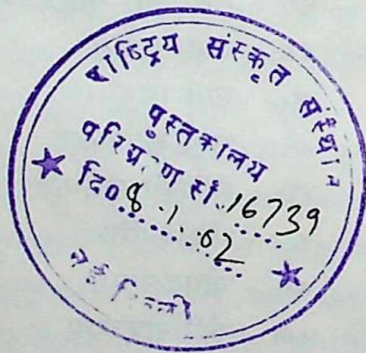 राष्ट्रिय संस्कृत संस्थान
पुस्तकालय
परिग्रहण सं. 16739
दि० 8.1.02
नई दिल्ली